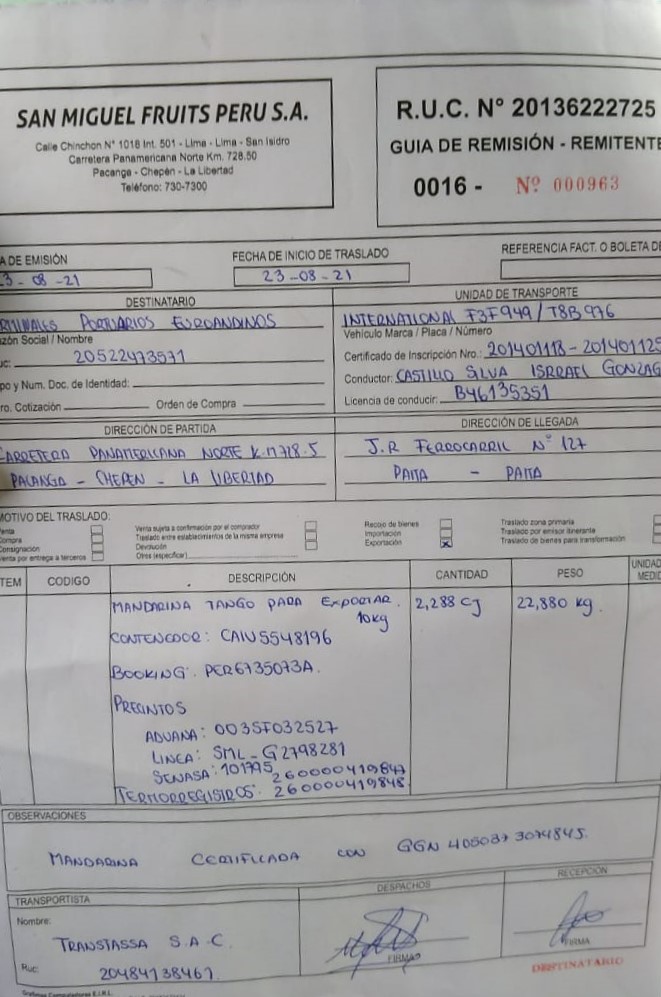 SAN MIGUEL FRUITS PERU S.A.
Calle Chinchon N° 1018 Int. 501 - Lima - Lima - San Isidro
Carretera Panamericana Norte Km. 728.50
Pacanga - Chepén - La Libertad
Teléfono: 730-7300
R.U.C. N° 20136222725
GUIA DE REMISIÓN - REMITENTE
0016 - Nº 000963
A DE EMISIÓN
23-08-21
FECHA DE INICIO DE TRASLADO
23-08-21
REFERENCIA FACT. O BOLETA DE
DESTINATARIO
RMINALES PORTUARIOS EUROANDINOS
zón Social / Nombre
uc: 20522473571
po y Num. Doc. de Identidad:
ro. Cotización Orden de Compra
UNIDAD DE TRANSPORTE
INTERNATIONAL F3F949/T8B976
Vehículo Marca / Placa / Número
Certificado de Inscripción Nro.: 201401118-201401125
Conductor: CASTILLO SILVA ISRRAEL GONZAG
Licencia de conducir: B46135351
DIRECCIÓN DE PARTIDA
CARRETERA PANAMERICANA NORTE K.M728.5
PACANGA - CHEPEN - LA LIBERTAD
DIRECCIÓN DE LLEGADA
J.R FERROCARRIL Nº 127
PAITA - PAITA
MOTIVO DEL TRASLADO:
Venta
Compra
Consignación
Venta por entrega a terceros
Venta sujeta a confirmación por el comprador
Traslado entre establecimientos de la misma empresa
Devolución
Otros (especificar)
Recojo de bienes
Importación
Exportación X
Traslado zona primaria
Traslado por emisor itinerante
Traslado de bienes para transformación
TEM CODIGO DESCRIPCIÓN CANTIDAD PESO UNIDAD MEDI
MANDARINA TANGO PARA EXPORTAR. 2,288 CJ 22,880 kg.
10kg
CONTENEDOR: CAIU5548196
BOOKING: PER6735073A.
PRECINTOS
ADUANA: 0035F032527
LINEA: SML-G2798281
SENASA: 101795
260000419847
TERMORREGISTROS: 260000419848
OBSERVACIONES
MANDARINA CERTIFICADA CON GGN 4050373074845.
TRANSPORTISTA
Nombre:
TRANSTASSA S.A.C.
Ruc: 20484138461.
DESPACHOS
FIRMA
RECEPCIÓN
FIRMA
DESTINATARIO